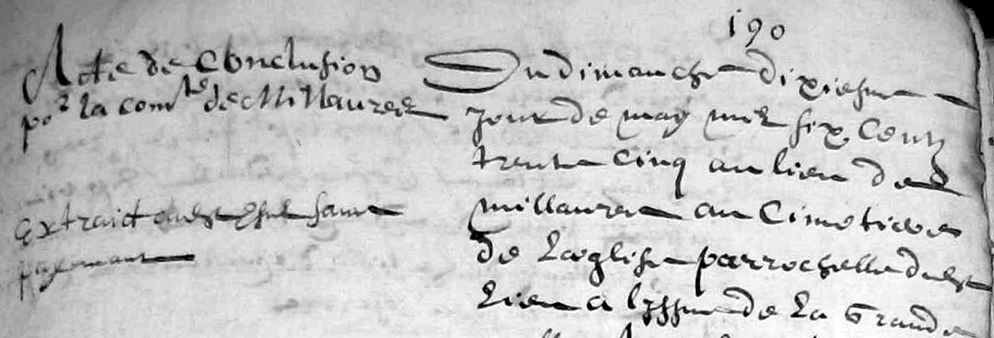 190
Acte de Conclusion
po^r la com^te de Millaures
Extraict sans
payement
Du dimanche dixiesme
jour de may mil six Centz
trente Cinq au lieu de
millaures au Cimetiere
de Leglise parrochelle dud
Lieu a lyssue de La Grande